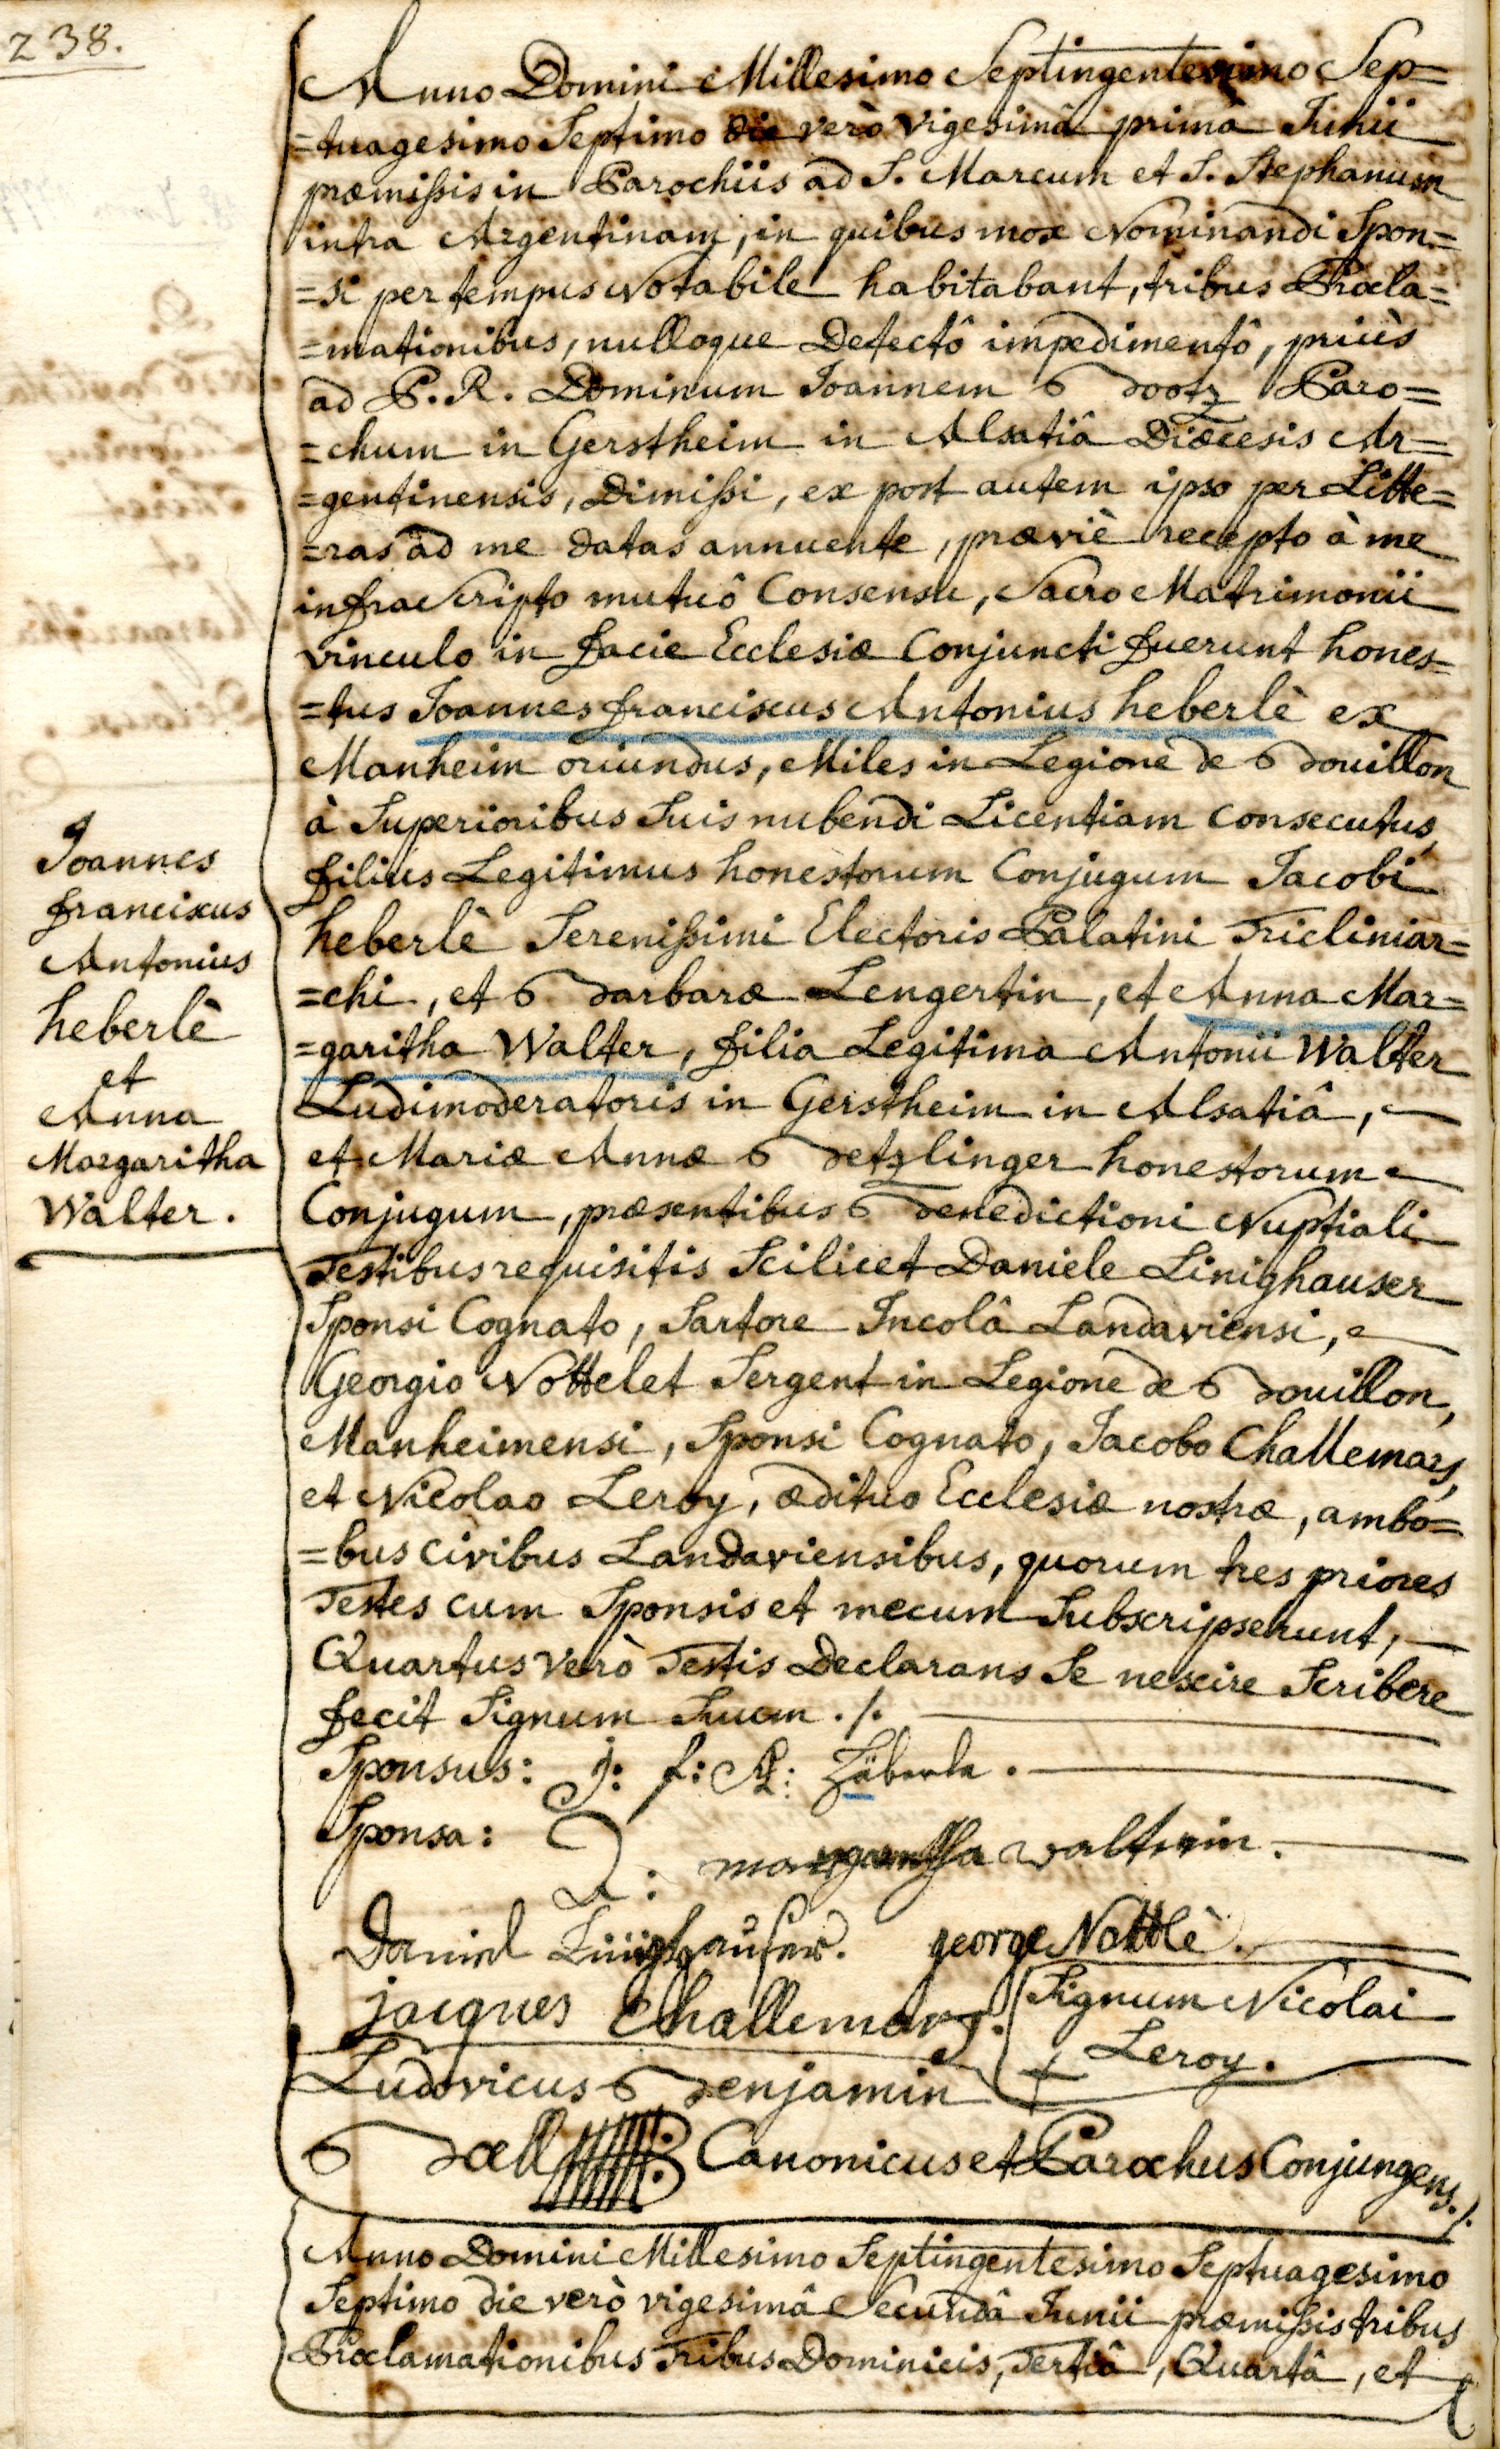 238.
Anno Domini Millesimo Septingentesimo Sep=
=tuagesimo Septimo die verò vigesimâ primâ Junii
præmissis in Parochiis ad S. Marcum et S. Stephanum
intra Argentinam, in quibus mox Nominandi Spon=
=si per tempus Notabile habitabant, tribus Procla=
=mationibus, nulloque Detectô impedimentô, priùs
ad P. R. Dominum Joannem Bootz Paro=
=chum in Gerstheim in Alsatiâ Diœcesis Ar=
=gentinensis, Dimissi, ex post autem ipso per Litte=
=ras ad me datas annuente, præviè recepto à me
infra Scripto mutuô Consensu, Sacro Matrimonii
vinculo in facie Ecclesiæ Conjuncti fuerunt hones=
=tus Joannes franciscus Antonius heberlè ex
Manheim oriundus, Miles in Legione de Bouillon
à Superioribus Suis nubendi Licentiam Consecutus,
filius Legitimus honestorum Conjugum Jacobi
heberlè Serenissimi Electoris Palatini Tricliniar=
=chi, et Barbaræ Lengertin, et Anna Mar=
=garitha Walter, filia Legitima Antonii Walter
Ludimoderatoris in Gerstheim in Alsatiâ,
et Mariæ Annæ Betzlinger honestorum
Conjugum, præsentibus Benedictioni Nuptiali
Testibus requisitis Scilicet Daniele Linighauser
Sponsi Cognato, Sartore Incolâ Landaviensi,
Georgio Nottelet Sergent in Legione de Bouillon,
Manheimensi, Sponsi Cognato, Jacobo Challemars,
et Nicolao Leroy, ædituo Ecclesiæ nostræ, ambo=
=bus Civibus Landaviensibus, quorum tres priores
Testes cum Sponsis et mecum Subscripserunt,
Quartus verò Testis Declarans Se nescire Scribere
fecit Signum Suum ./.
Joannes
franciscus
Antonius
heberlè
et
Anna
Margaritha
Walter.
Sponsus: j: f: A: Häberle.
Sponsa: A: margaretha walterin.
Daniel Linighauser. george Nottlè.
jacques Challemars. Signum Nicolai
+ Leroy.
Ludovicus Benjamin
Bœll Canonicus et Parochus Conjungens ./.
Anno Domini Millesimo Septingentesimo Septuagesimo
Septimo die verò vigesimâ Secundâ Junii præmissis tribus
Proclamationibus Tribus Dominicis, Tertiâ, Quartâ, et